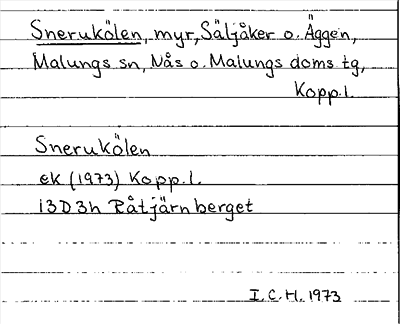 Snerukölen, myr, Säljåker o. Äggen,
Malungs sn, Nås o. Malungs doms tg,
Kopp.l.
Snerukölen
ek (1973) Kopp.l.
13D3h Råtjärnberget
I.C.H. 1973